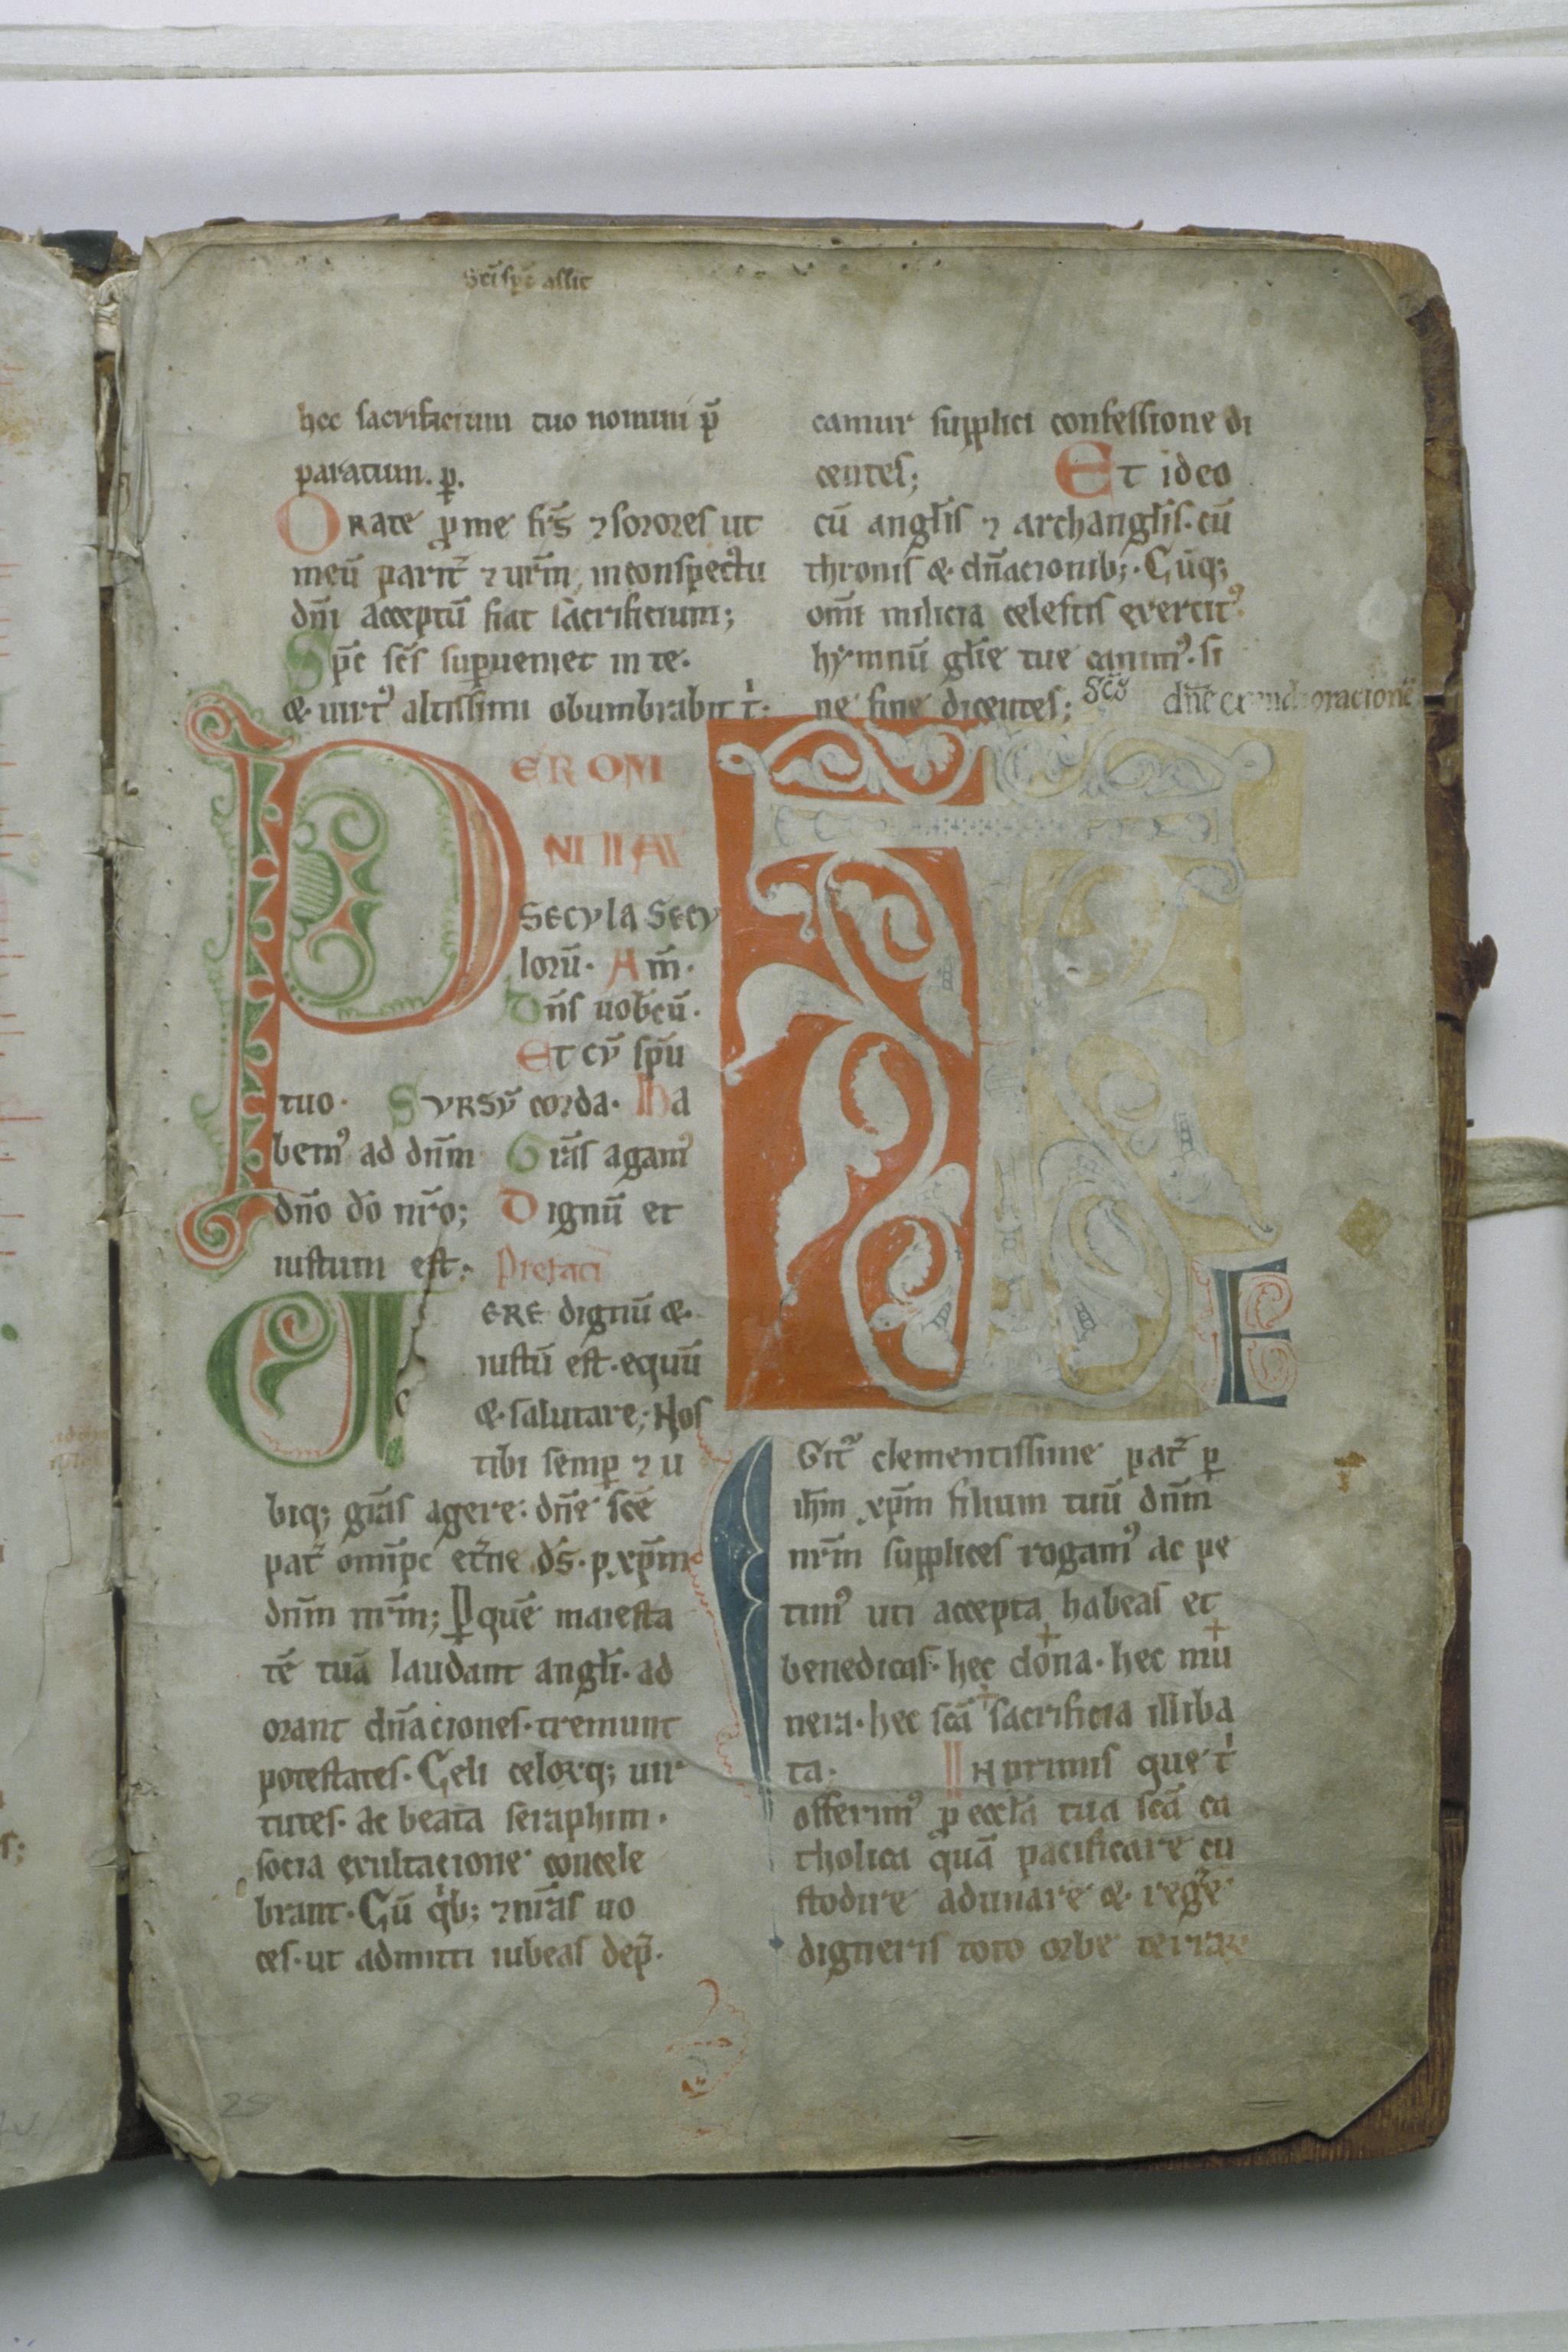 Sc̄i sp̄c assit
hec sacrificium tuo nomini p̄
paratum. p̱.
Orate ꝓ me fr̄s ⁊ sorores ut
meū parit̄ ⁊ ur̄m in conspectu
dn̄i acceptū fiat sacrificium;
Sp̄c sc̄s superueniet in te.
& uirt᾿ altissimi obumbrabit t̍:
PER OM
NIA
secula secu
lorū. Am̄.
Dn̄s uobcū.
Et cū sp̄u
tuo. Sursū corda. Ha
bem᾿ ad dn̄m Gr̄as agam᾿
dn̄o dō nr̄o; Dignū et
iustum est; Prefaci
ERE dignū &
iustū est. equū
& salutare; Nos
tibi semꝑ ⁊ u
biq; gr̄as agere. dn̄e sc̄e
pat̄ omīpc et̄ne ds̄. p xp̄m
dn̄m nr̄m; Ꝑ quē maiesta
tē tuā laudant angl̄i. ad
orant dn̄aciones. tremunt
potestates. Celi celorq; uir
tutes. ac beata seraphim.
socia exultacione concele
brant. Cū q̍b; ⁊ nr̄as uo
ces. ut admitti iubeas dep̄.
camur supplici confessione di
centes; Et ideo
cū angl̄is ⁊ archangl̄is. cū
thronis & dn̄acionib;. Cūq;
omī milicia celestis exercit᾿
hymnū gl̄ie tue canim᾿. si
ne fine dicentes; Sc̄s dn̄e exaudi oracionē
TE
Igit᾿ clementissime pat̄ ꝑ
ih̄m xp̄m filium tuū dn̄m
nr̄m supplices rogam᾿ ac pe
tim᾿ uti accepta habeas et
benedicas. hec + dona. hec + mu
nera. hec sc̄a + sacrificia illiba
ta. In primis que t̍
offerim᾿ ꝓ eccl̄a tua sc̄a ca
tholica quā pacificare cu
stodire adunare & reg̃e
digneris toto orbe terrar
25